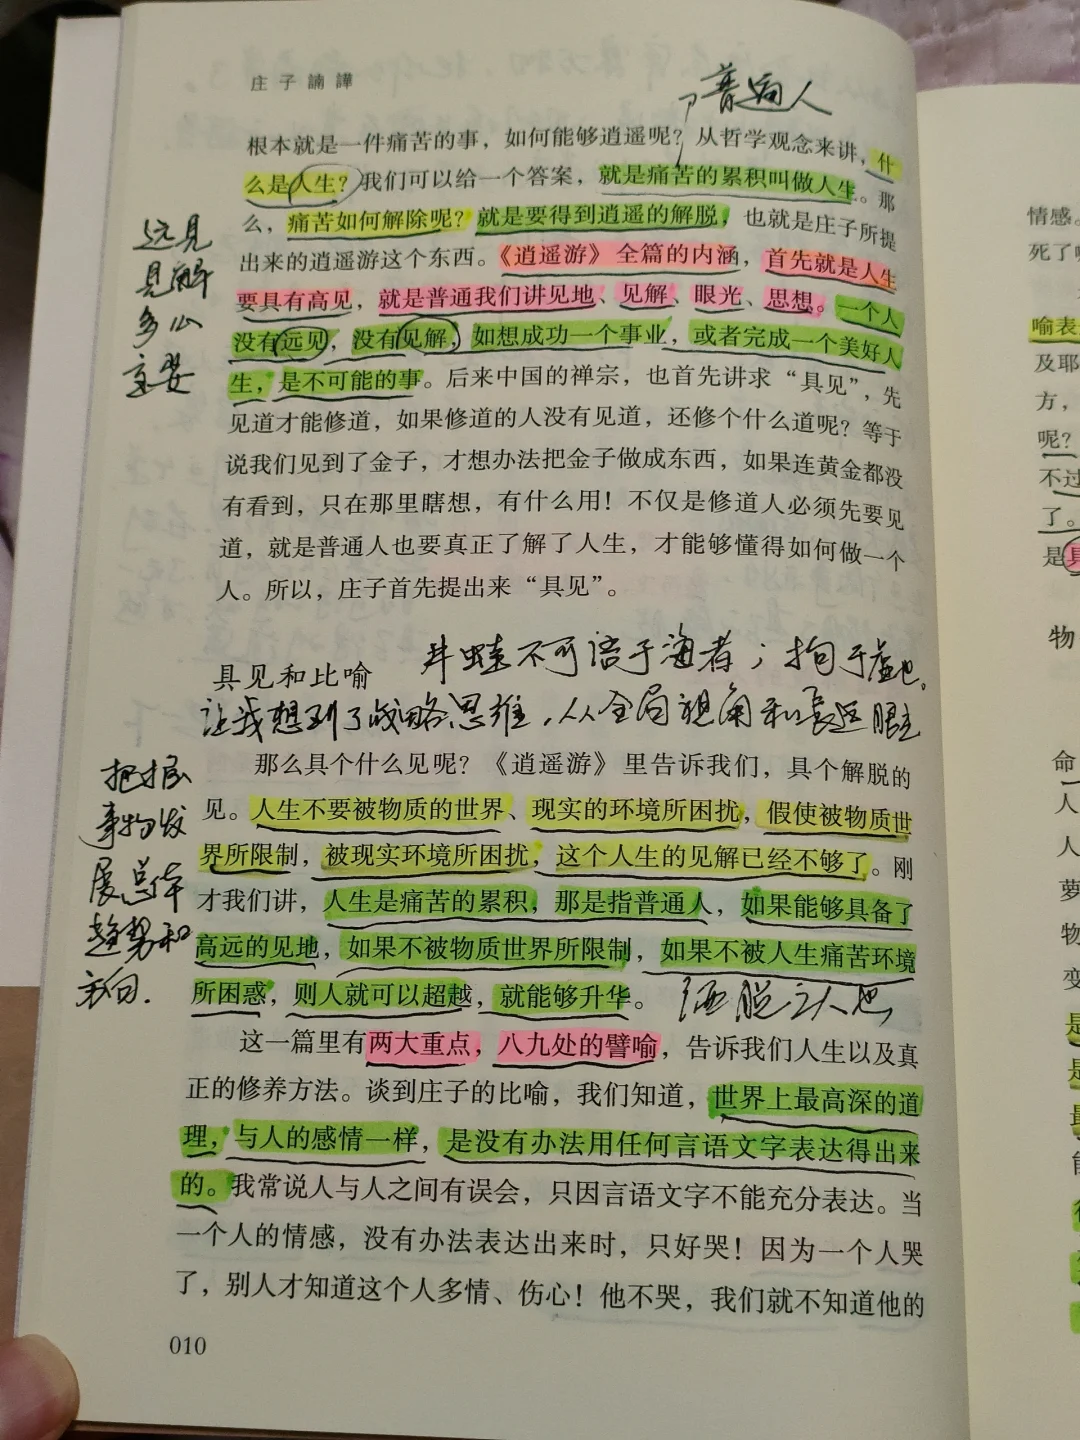 庄子諵譁
普通人
根本就是一件痛苦的事，如何能够逍遥呢？从哲学观念来讲，什
么是人生？我们可以给一个答案，就是痛苦的累积叫做人生。那
么，痛苦如何解除呢？就是要得到逍遥的解脱，也就是庄子所提
出来的逍遥游这个东西。《逍遥游》全篇的内涵，首先就是人生
要具有高见，就是普通我们讲见地、见解、眼光、思想。一个人
没有远见，没有见解，如想成功一个事业，或者完成一个美好人
生，是不可能的事。后来中国的禅宗，也首先讲求“具见”，先
见道才能修道，如果修道的人没有见道，还修个什么道呢？等于
说我们见到了金子，才想办法把金子做成东西，如果连黄金都没
有看到，只在那里瞎想，有什么用！不仅是修道人必须先要见
道，就是普通人也要真正了解了人生，才能够懂得如何做一个
人。所以，庄子首先提出来“具见”。
远见
见解
多么
重要
具见和比喻
井蛙不可语于海者；拘于虚也。
让我想到了战略思维，从全局视角和长远眼光
把握
事物发
展总体
趋势和
方向.
那么具个什么见呢？《逍遥游》里告诉我们，具个解脱的
见。人生不要被物质的世界、现实的环境所困扰，假使被物质世
界所限制，被现实环境所困扰，这个人生的见解已经不够了。刚
才我们讲，人生是痛苦的累积，那是指普通人，如果能够具备了
高远的见地，如果不被物质世界所限制，如果不被人生痛苦环境
所困惑，则人就可以超越，就能够升华。
洒脱之人也
这一篇里有两大重点，八九处的譬喻，告诉我们人生以及真
正的修养方法。谈到庄子的比喻，我们知道，世界上最高深的道
理，与人的感情一样，是没有办法用任何言语文字表达得出来
的。我常说人与人之间有误会，只因言语文字不能充分表达。当
一个人的情感，没有办法表达出来时，只好哭！因为一个人哭
了，别人才知道这个人多情、伤心！他不哭，我们就不知道他的
010
情感。
死了
喻表
及耶
方，
呢？
不过
了。
是具
物
命
人
人
萝
物
变
是
是
最